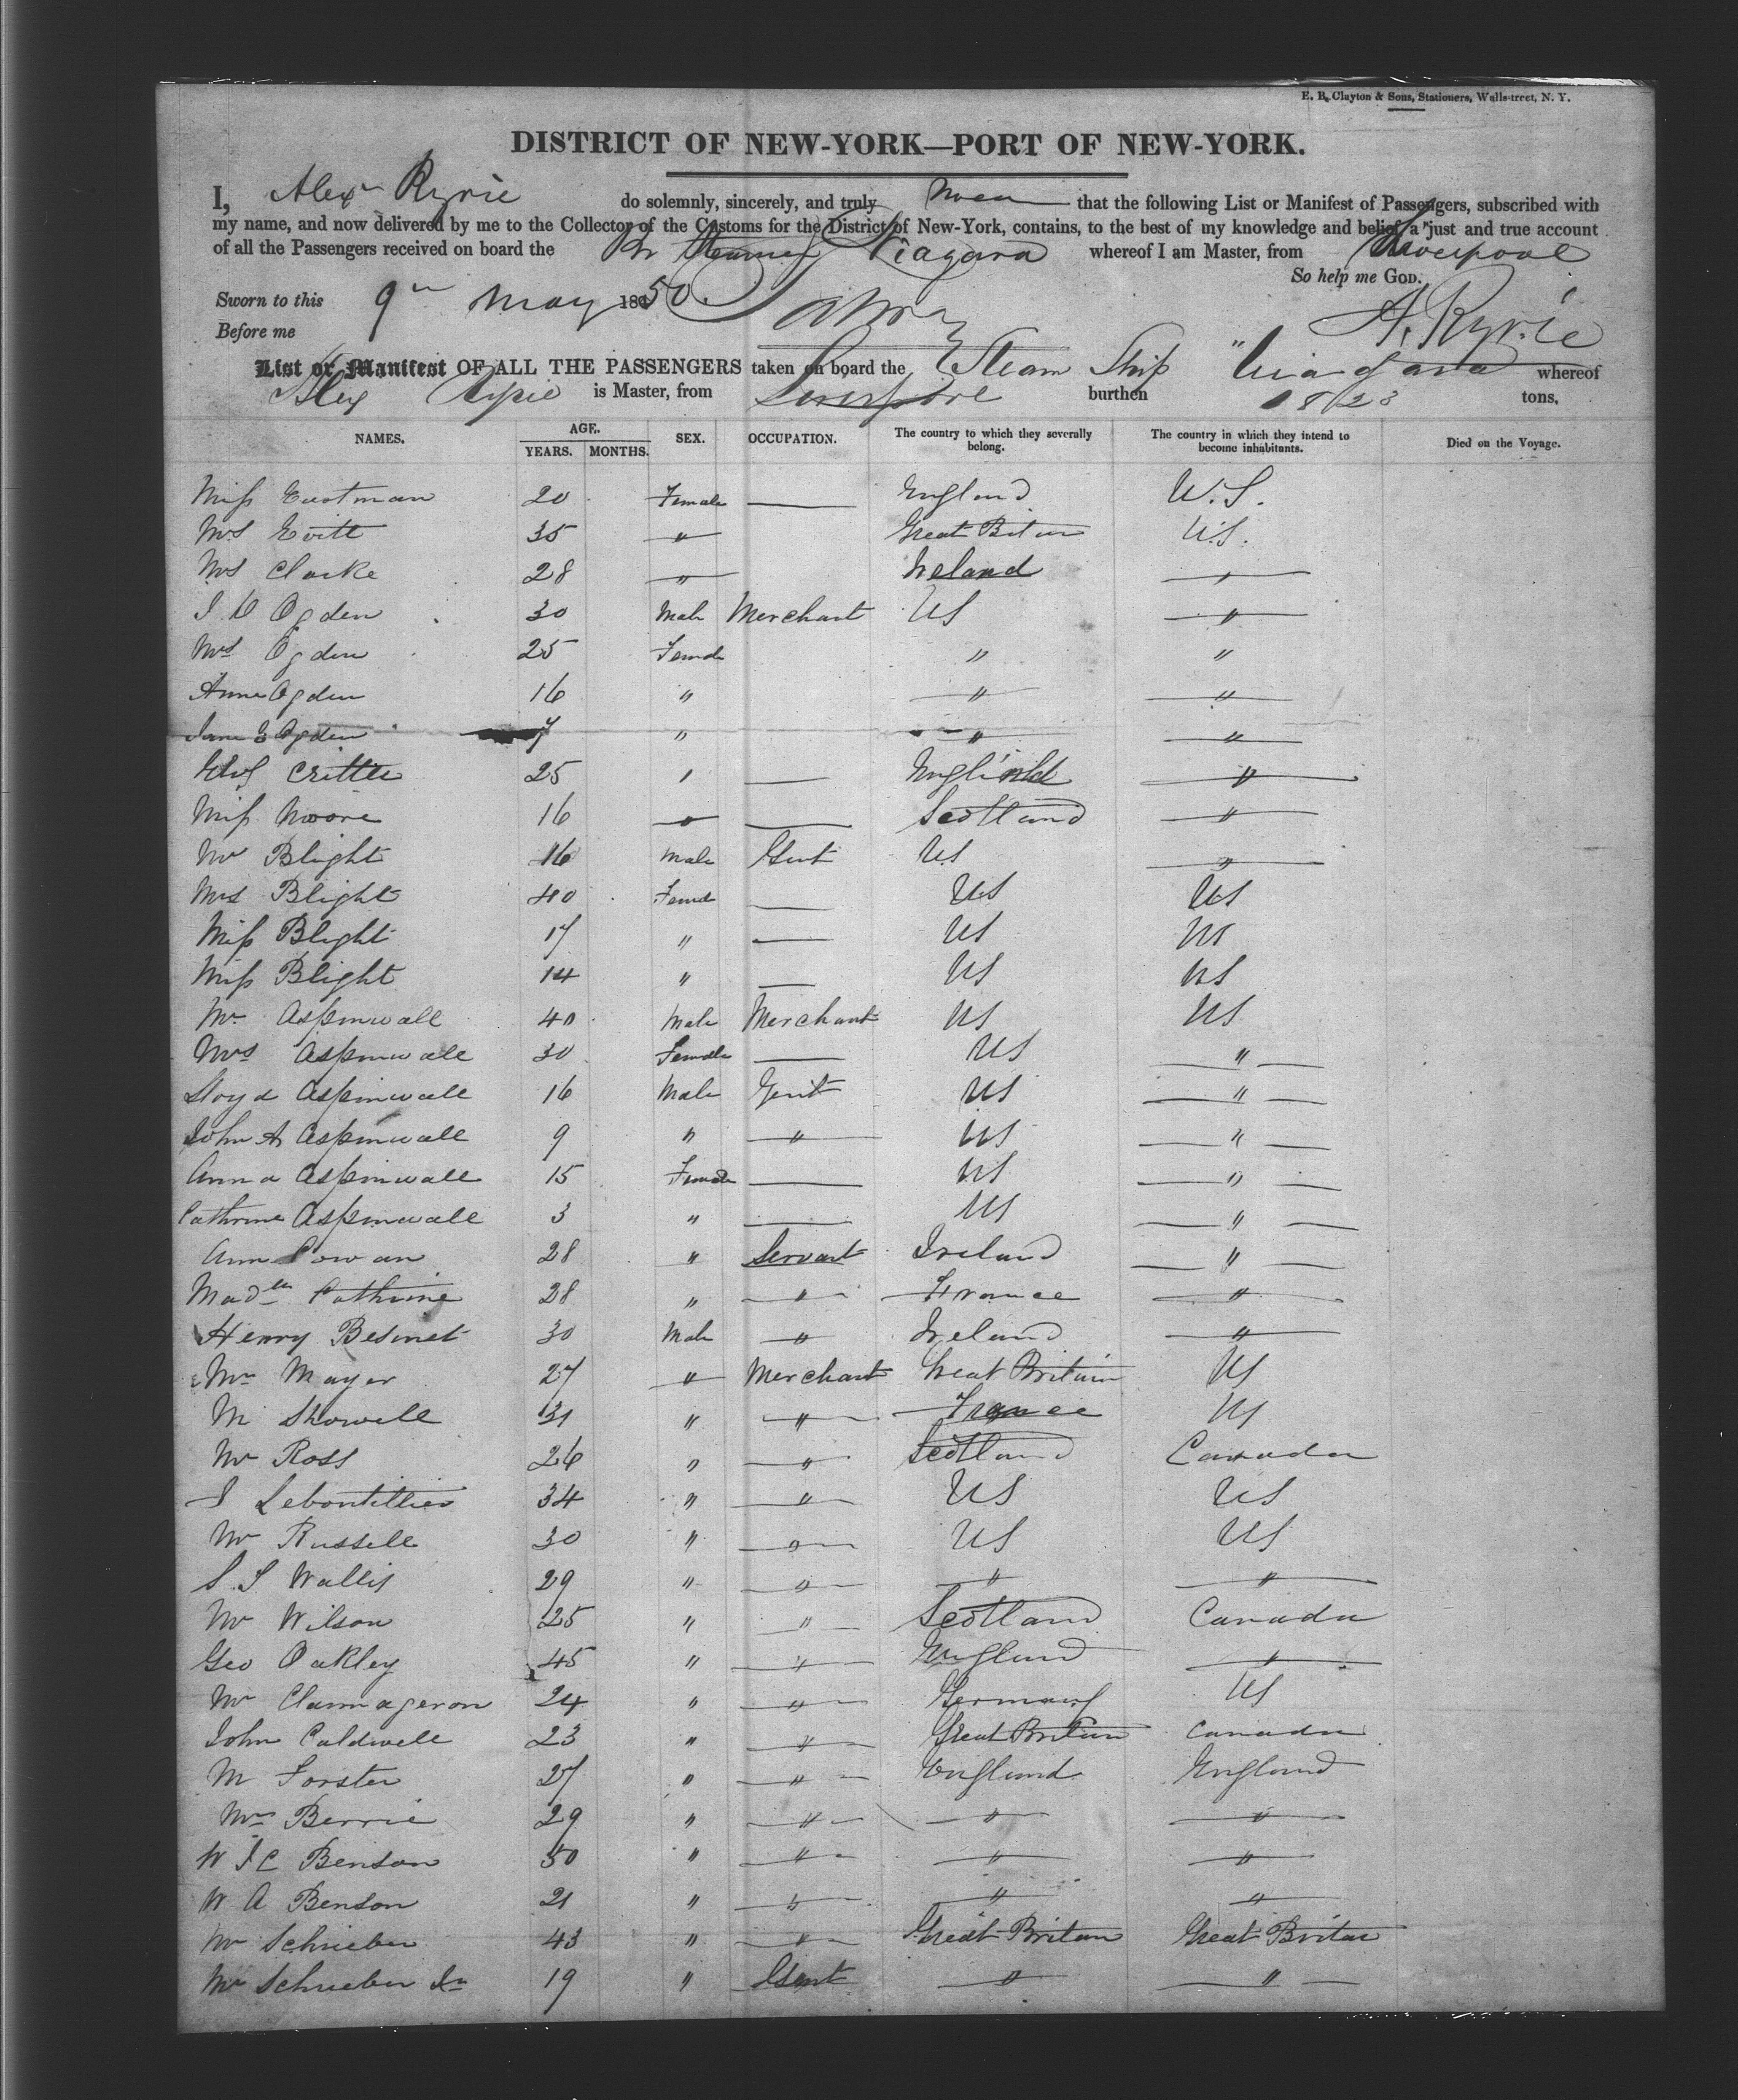 E. B. Clayton & Sons, Stationers, Wall-street, N. Y.
DISTRICT OF NEW-YORK—PORT OF NEW-YORK.
I, Alexr Ryrie do solemnly, sincerely, and truly swear that the following List or Manifest of Passengers, subscribed with
my name, and now delivered by me to the Collector of the Customs for the District of New-York, contains, to the best of my knowledge and belief, a just and true account
of all the Passengers received on board the Br Steamer Niagara whereof I am Master, from Liverpool
So help me GOD.
Sworn to this 9th May 1850. A. Ryrie
Before me
List or Manifest OF ALL THE PASSENGERS taken on board the Steam Ship "Niagara whereof
Alex Ryrie is Master, from Liverpool burthen 1823 tons.
NAMES. AGE. YEARS. MONTHS. SEX. OCCUPATION. The country to which they severally belong. The country in which they intend to become inhabitants. Died on the Voyage.
Miss Eastman 20 Female — England U.S.
Mrs Evitt 35 " Great Britain U.S.
Mrs Clarke 28 " Ireland "
Ogden 30 Male Merchant US "
Mrs Ogden 25 Female " "
Anne Ogden 16 " " "
Jane E Ogden 7 " " "
25 " — England "
Miss Moore 16 " — Scotland "
Mr Blight 16 Male Gent US "
Mrs Blight 40 Female — US US
Miss Blight 17 " — US US
Miss Blight 14 " — US US
Mr. Aspinwall 40 Male Merchant US US
Mrs Aspinwall 30 Female — US "
Lloyd Aspinwall 16 Male Gent US "
John A Aspinwall 9 " " US "
Anna Aspinwall 15 Female — US "
Cathrine Aspinwall 3 " — US "
Ann Cowan 28 " Servant Ireland "
Madlle Cathrine 28 " " France "
Henry Besnet 30 Male " Ireland "
Mr Mayer 27 " Merchant Great Britain US
M Showell 31 " " France US
Mr Ross 26 " " Scotland Canada
Lebontillier 34 " " US US
Mr Russell 30 " " US US
S. T Wallis 29 " " " "
Mr Wilson 25 " " Scotland Canada
Geo Oakley 45 " " England "
Mr Clamageron 24 " " Germany US
John Caldwell 23 " " Great Britain Canada
M Forster 27 " " England England
Mr Berrie 29 " " " "
W Benson 50 " " " "
W A Benson 21 " " " "
Mr Schrieber 43 " " Great Britain Great Britain
Mr Schrieber Jr 19 " Gent " "